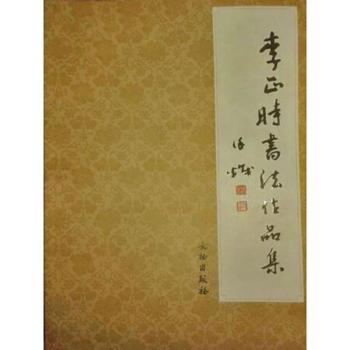 李正时書法作品集
文物出版社